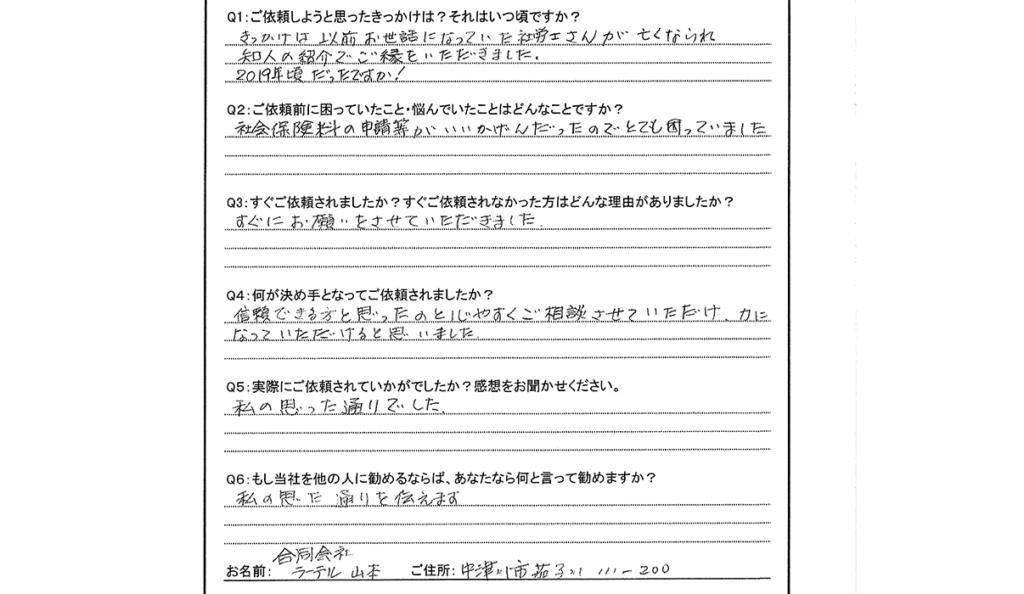 Q1:ご依頼しようと思ったきっかけは?それはいつ頃ですか?
きっかけは 以前お世話になっていた社労士さんが 亡くなられ
知人の紹介でご縁をいただきました。
2019年頃だったですか!
Q2:ご依頼前に困っていたこと・悩んでいたことはどんなことですか?
社会保険料の申請等がいいかげんだったのでとても困っていました
Q3:すぐご依頼されましたか?すぐご依頼されなかった方はどんな理由がありましたか?
すぐにお願いをさせていただきました.
Q4:何が決め手となってご依頼されましたか?
信頼できる方と思ったのと しやすくご相談させていただけ、力に
なっていただけると思いました.
Q5:実際にご依頼されていかがでしたか?感想をお聞かせください。
私の思った通りでした.
Q6:もし当社を他の人に勧めるならば、あなたなら何と言って勧めますか?
私の思った通りを伝えます
合同会社
お名前: ラーテル 山本 ご住所: 中津川市茄子川 111-200